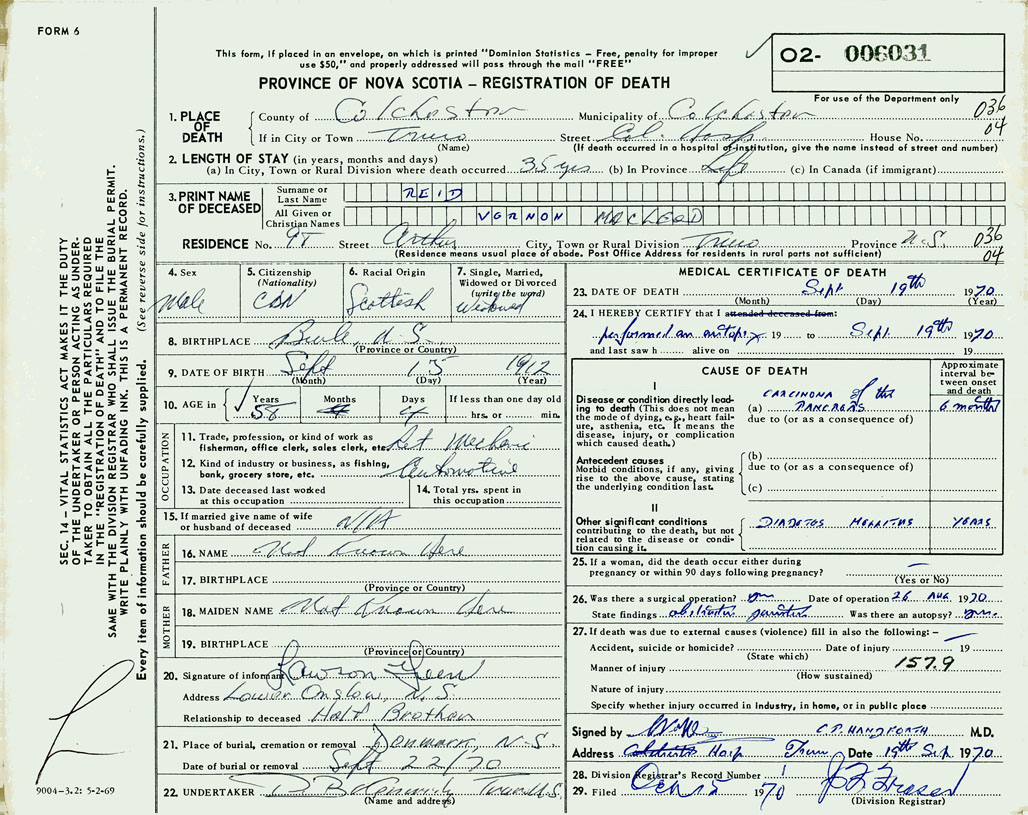 FORM 6
This form, if placed in an envelope, on which is printed "Dominion Statistics – Free, penalty for improper
use $50," and properly addressed will pass through the mail "FREE"
PROVINCE OF NOVA SCOTIA – REGISTRATION OF DEATH
O2- 006031
For use of the Department only
036
04
1. PLACE OF DEATH
County of Colchester Municipality of Colchester
If in City or Town Truro Street Col. Hosp House No.
(Name) (If death occurred in a hospital or institution, give the name instead of street and number)
2. LENGTH OF STAY (in years, months and days)
(a) In City, Town or Rural Division where death occurred 35 yrs (b) In Province Life (c) In Canada (if immigrant)
3. PRINT NAME OF DECEASED
Surname or Last Name REID
All Given or Christian Names VERNON MACLEOD
RESIDENCE No. 98 Street Arthur City, Town or Rural Division Truro Province N.S.
(Residence means usual place of abode. Post Office Address for residents in rural parts not sufficient)
036
04
4. Sex
Male
5. Citizenship (Nationality)
CDN
6. Racial Origin
Scottish
7. Single, Married, Widowed or Divorced (write the word)
Widowed
8. BIRTHPLACE N.S.
(Province or Country)
9. DATE OF BIRTH Sept 15 1912
(Month) (Day) (Year)
10. AGE in Years Months Days If less than one day old
58 4 hrs. or min.
OCCUPATION
11. Trade, profession, or kind of work as
fisherman, office clerk, sales clerk, etc. Ret Mechanic
12. Kind of industry or business, as fishing,
bank, grocery store, etc. Automotive
13. Date deceased last worked
at this occupation
14. Total yrs. spent in
this occupation
15. If married give name of wife
or husband of deceased N/A
FATHER
16. NAME Not Known Here
17. BIRTHPLACE
(Province or Country)
MOTHER
18. MAIDEN NAME Not Known Here
19. BIRTHPLACE
(Province or Country)
20. Signature of informant Lawson
Address Lower Onslow, N.S.
Relationship to deceased Half Brother
21. Place of burial, cremation or removal Denmark, N.S.
Date of burial or removal Sept 22/70
22. UNDERTAKER Truro N.S.
(Name and address)
MEDICAL CERTIFICATE OF DEATH
23. DATE OF DEATH Sept 19th 1970
(Month) (Day) (Year)
24. I HEREBY CERTIFY that I attended deceased from:
performed an autopsy 19 to Sept. 19th 1970
and last saw h alive on 19
CAUSE OF DEATH
Approximate interval between onset and death
I
Disease or condition directly leading to death (This does not
mean the mode of dying, e.g., heart failure,
asthenia, etc. It means the
disease, injury, or complication
which caused death.)
(a) CARCINOMA of the PANCREAS 6 months
due to (or as a consequence of)
Antecedent causes
Morbid conditions, if any, giving
rise to the above cause, stating
the underlying condition last.
(b)
due to (or as a consequence of)
(c)
II
Other significant conditions
contributing to the death, but not
related to the disease or condition
causing it.
DIABETES MELLITUS YEARS
25. If a woman, did the death occur either during
pregnancy or within 90 days following pregnancy?
(Yes or No)
26. Was there a surgical operation? yes Date of operation 26 AUG 1970
State findings Was there an autopsy? yes
27. If death was due to external causes (violence) fill in also the following: –
Accident, suicide or homicide? Date of injury 19
(State which)
Manner of injury 157.9
(How sustained)
Nature of injury
Specify whether injury occurred in industry, in home, or in public place
Signed by C.P. HANDFORTH M.D.
Address Colchester Hosp Truro Date 19th Sep 1970
28. Division Registrar's Record Number
29. Filed Oct 15 1970 Fraser
(Division Registrar)
SEC. 14 – VITAL STATISTICS ACT MAKES IT THE DUTY
OF THE UNDERTAKER OR PERSON ACTING AS UNDERTAKER
TO OBTAIN ALL THE PARTICULARS REQUIRED
IN THE "REGISTRATION OF DEATH" AND TO FILE THE
SAME WITH THE DIVISION REGISTRAR WHO SHALL ISSUE THE BURIAL PERMIT.
WRITE PLAINLY WITH UNFADING INK. THIS IS A PERMANENT RECORD.
Every item of information should be carefully supplied. (See reverse side for instructions.)
9004-3.2: 5-2-69